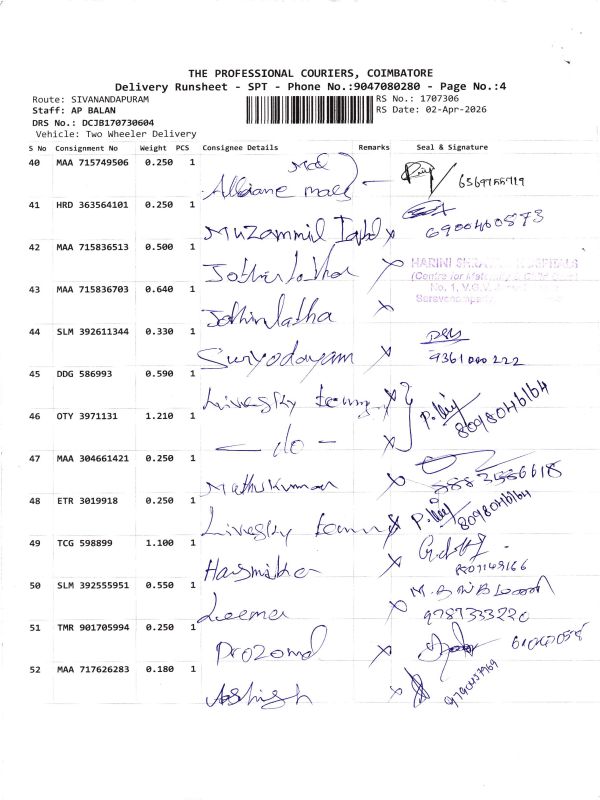 THE PROFESSIONAL COURIERS, COIMBATORE
Delivery Runsheet - SPT - Phone No.:9047080280 - Page No.:4
Route: SIVANANDAPURAM
RS No.: 1707306
Staff: AP BALAN
RS Date: 02-Apr-2026
DRS No.: DCJB170730604
Vehicle: Two Wheeler Delivery
S No Consignment No Weight PCS Consignee Details Remarks Seal & Signature
40 MAA 715749506 0.250 1
41 HRD 363564101 0.250 1
Muzammil Iqbal x 6900460573
42 MAA 715836513 0.500 1
HARINI
No. 1, V.G.V.
43 MAA 715836703 0.640 1
Jothirlatha x
44 SLM 392611344 0.330 1
Suryodayam x 9361000222
45 DDG 586993 0.590 1
Livesky x 8098046164
46 OTY 3971131 1.210 1
- do -
47 MAA 304661421 0.250 1
Mathikumar x
48 ETR 3019918 0.250 1
Livesky 8098046164
49 TCG 598899 1.100 1
x
50 SLM 392555951 0.550 1
Leema x 9787333220
51 TMR 901705994 0.250 1
Prozone x
52 MAA 717626283 0.180 1
Ashish x